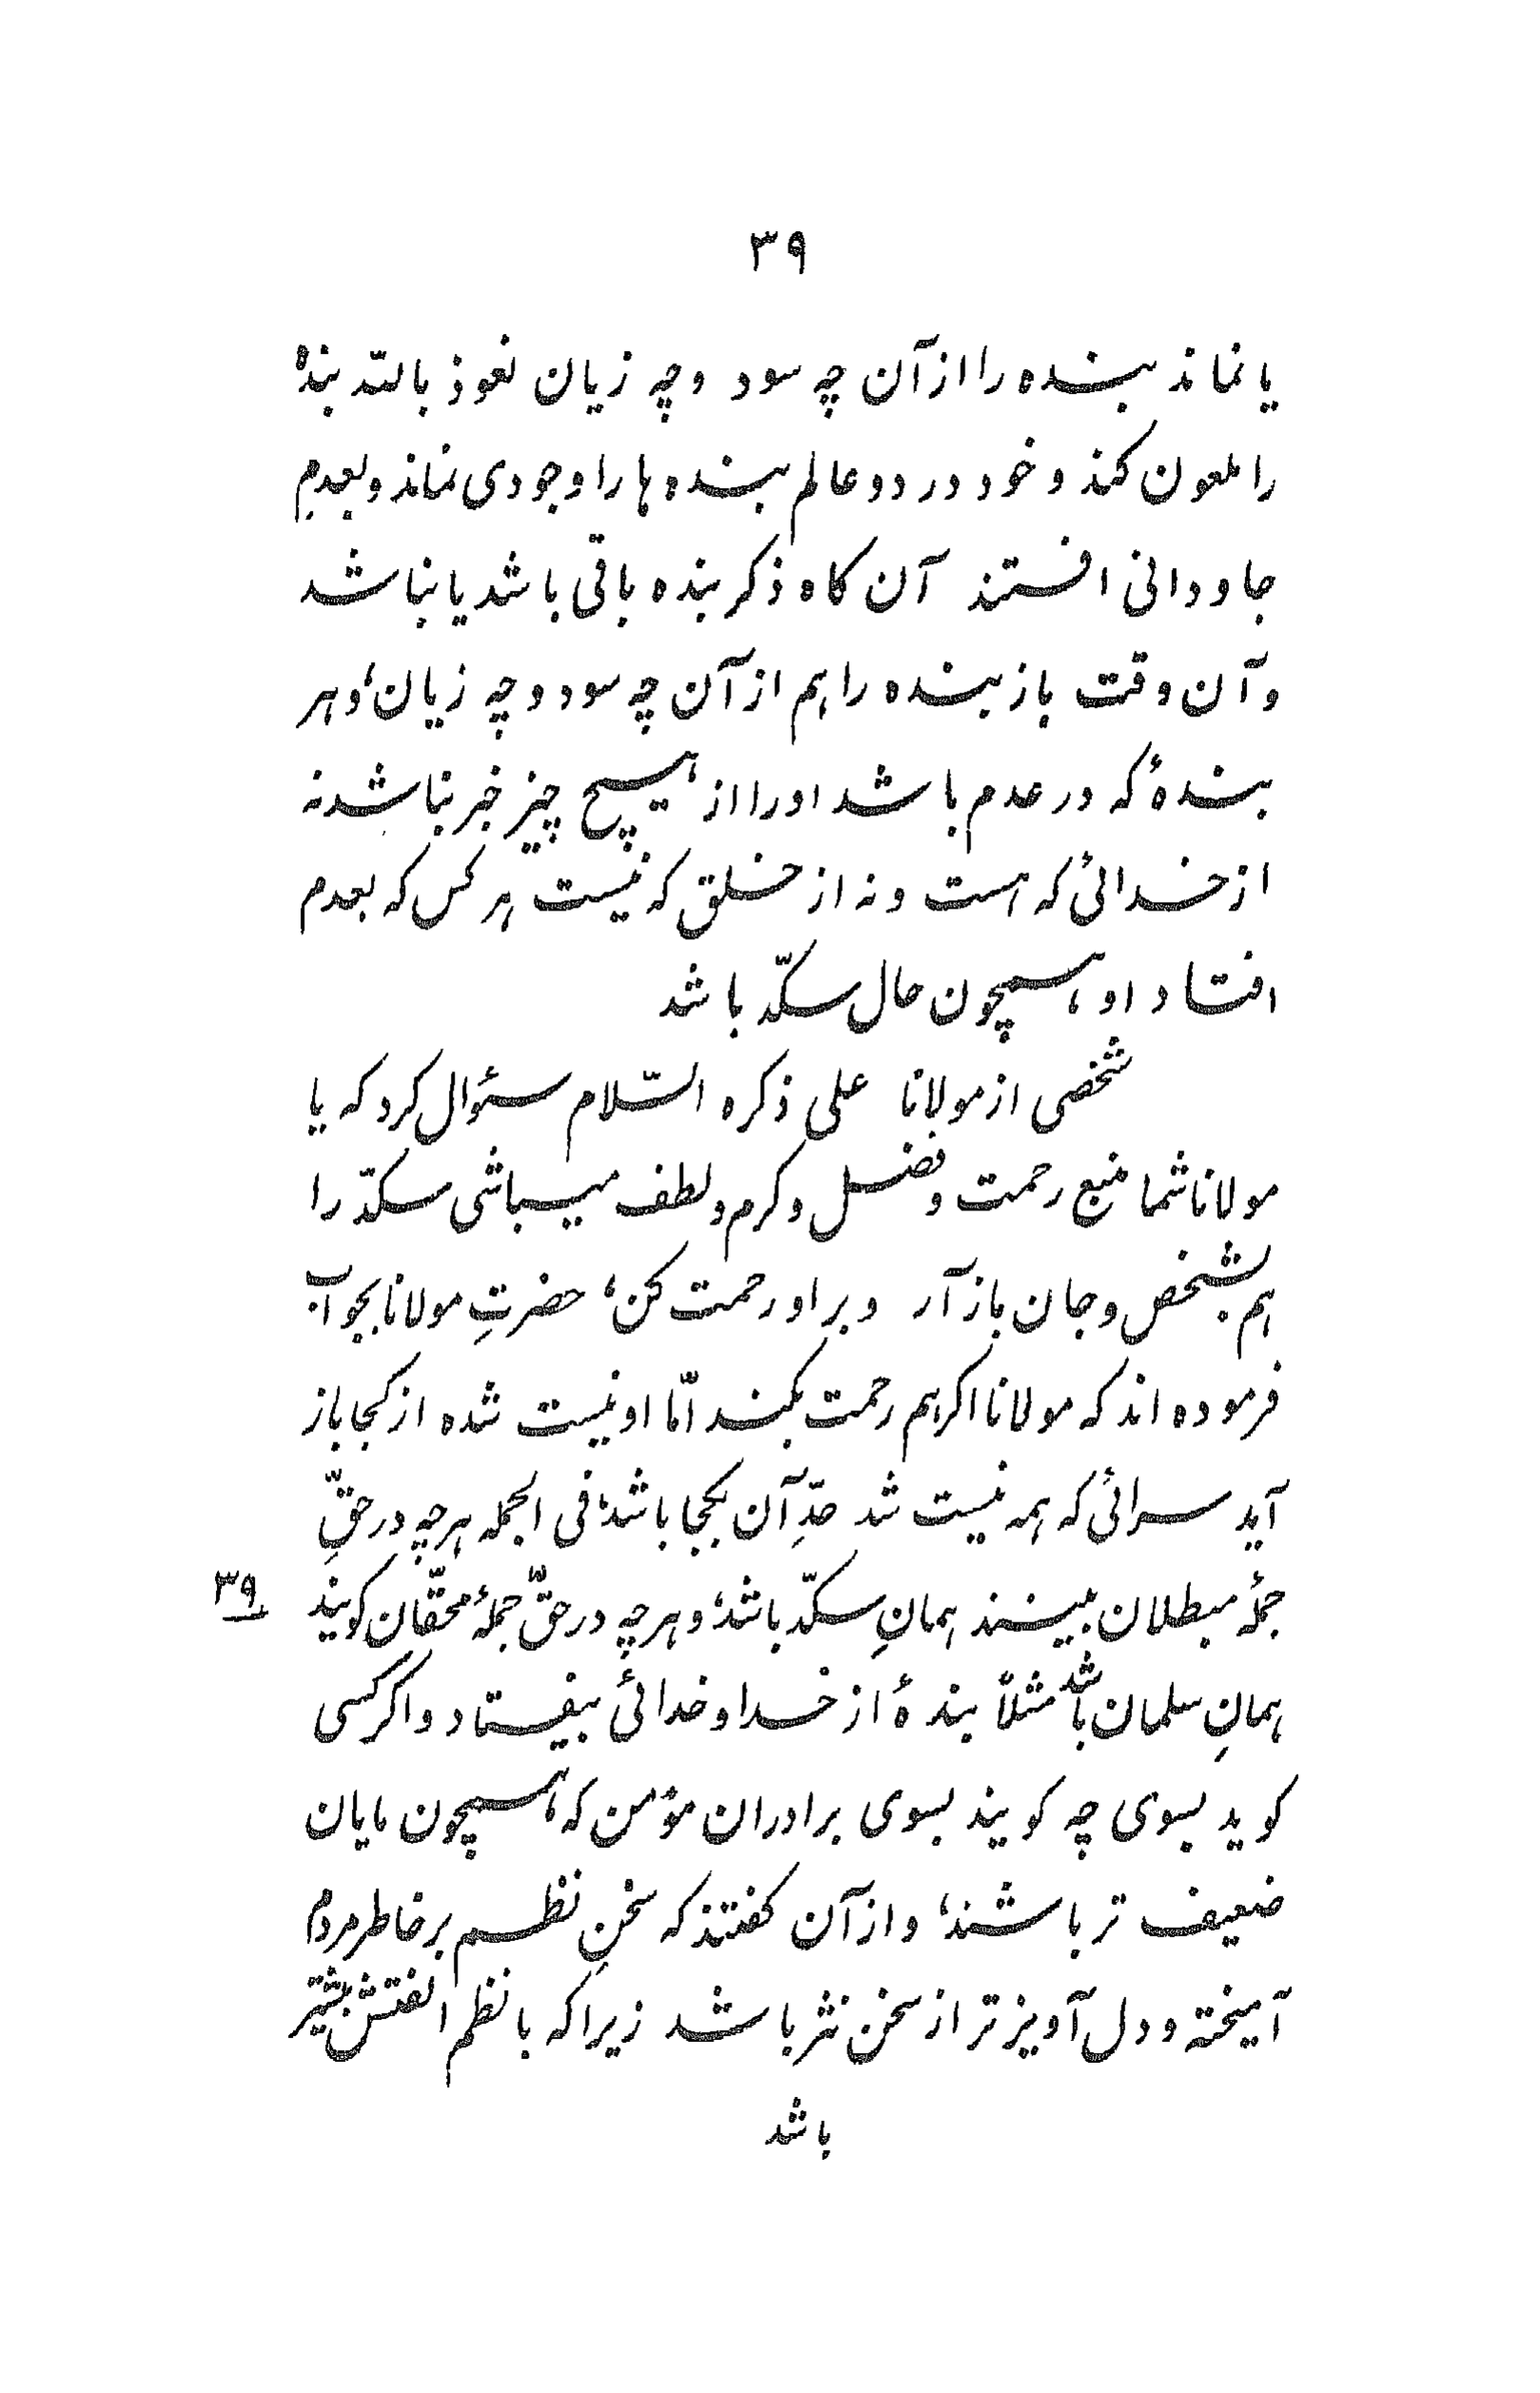 ۳۹
یا نماند بنده را از آن چه سود و چه زیان نعوذ بالله بندۀ
را ملعون کند و خود در دو عالم بنده ها را وجودی نماند و بعدمِ
جاودانی افتند آن کاه ذکر بنده باقی باشد یا نباشد
و آن وقت باز بنده را هم از آن چه سود و چه زیان، و هر
بندۀ که در عدم باشد او را از هیچ چیز خبر نباشد نه
از خدائی که هست و نه از خلق که نیست هر کس که بعدم
افتاد او همچون حال سکّد باشد
شخصی از مولانا علی ذکره السّلام سئوال کرد که یا
مولانا شما منبع رحمت و فضل و کرم و لطف میباشی سکدّ را
هم بشخص و جان باز آر و بر او رحمت کن، حضرتِ مولانا بجواب
فرموده اند که مولانا اکر هم رحمت بکند امّا او نیست شده از کجا باز
آید سرائی که همه نیست شد حدِّ آن بکجا باشد، فی الجمله هر چه در حقِّ
جملۀ مبطلان ببینند همانِ سکّد باشد، و هر چه در حقِّ جملۀ محقّان کویند
۳۹
همانِ سلمان باشد مثلاً بندۀ از خدا و خدائی بیفتاد و اکر کسی
کوید بسوی چه کویند بسوی برادران مؤمن که همچون مایان
ضعیف تر باشند، و از آن کفتند که سخنِ نظم بر خاطر مردم
آمیخته و دل آویز تر از سخن نثر باشد زیرا که با نظم الفتش بیشتر
باشد